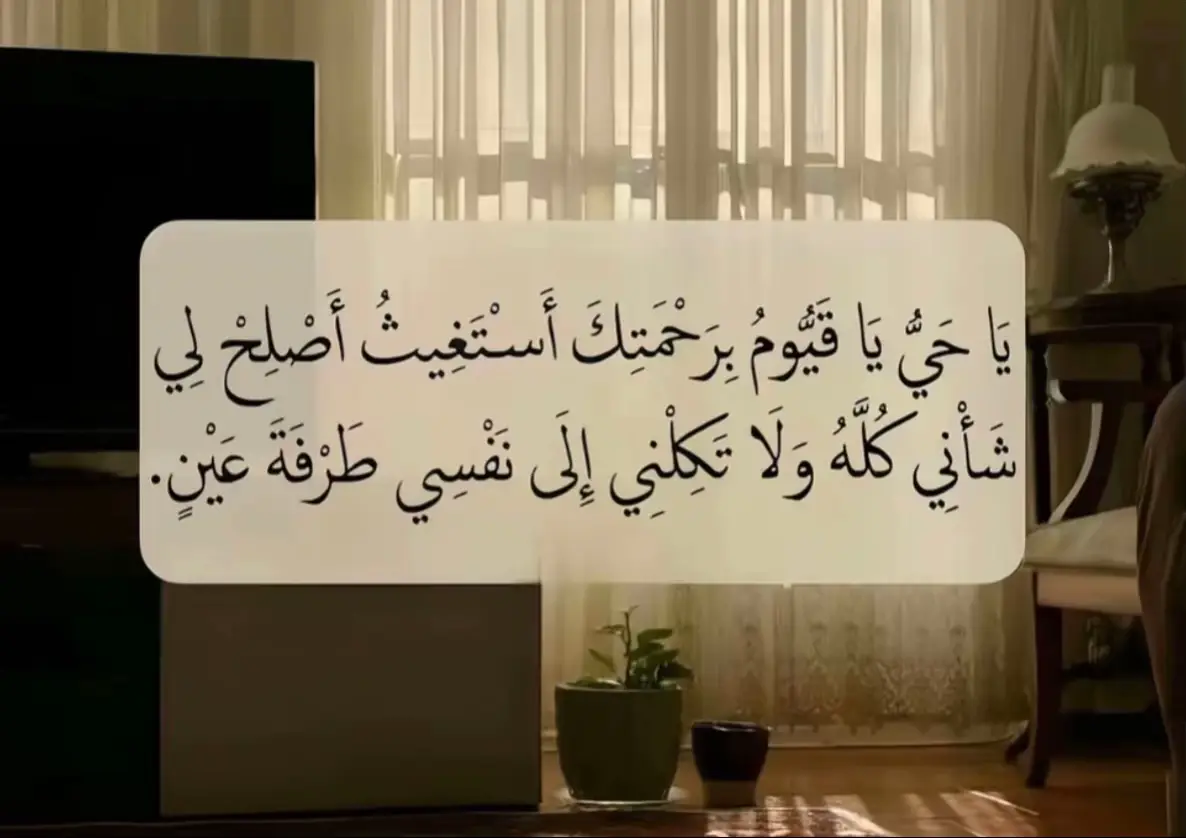 يَا حَيُّ يَا قَيُّومُ بِرَحْمَتِكَ أَسْتَغِيثُ أَصْلِحْ لِي
شَأْنِي كُلَّهُ وَلَا تَكِلْنِي إِلَى نَفْسِي طَرْفَةَ عَيْنٍ.